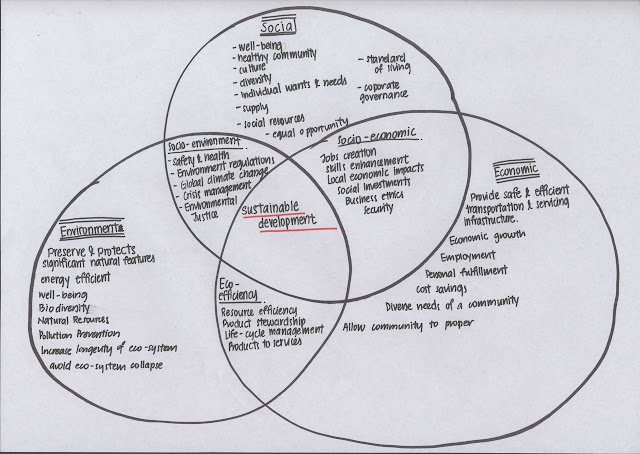 Social
- well-being
- healthy community
- culture
- diversity
- individual wants & needs
- supply
- social resources
- equal opportunity
- standard
of living
- coporate
governance
Socio-environment
- Safety & health
- Environment regulations
- Global climate change
- Crisis management
- Environmental
Justice
Socio-economic
Jobs creation
skills enhancement
Local economic impacts
Social Investments
Business ethics
Security
Economic
Provide safe & efficient
transportation & servicing
infrastructure.
Economic growth
Employment
Personal fulfillment
Cost savings
Diverse needs of a community
Allow community to proper
sustainable
development
Environmental
Preserve & Protects
significant natural features
energy efficient
well-being
Biodiversity
Natural Resources
Pollution Prevention
Increase longevity of eco-system
avoid eco-system collapse
Eco-
efficiency
Resource efficiency
Product stewardship
Life-cycle management
Products to services